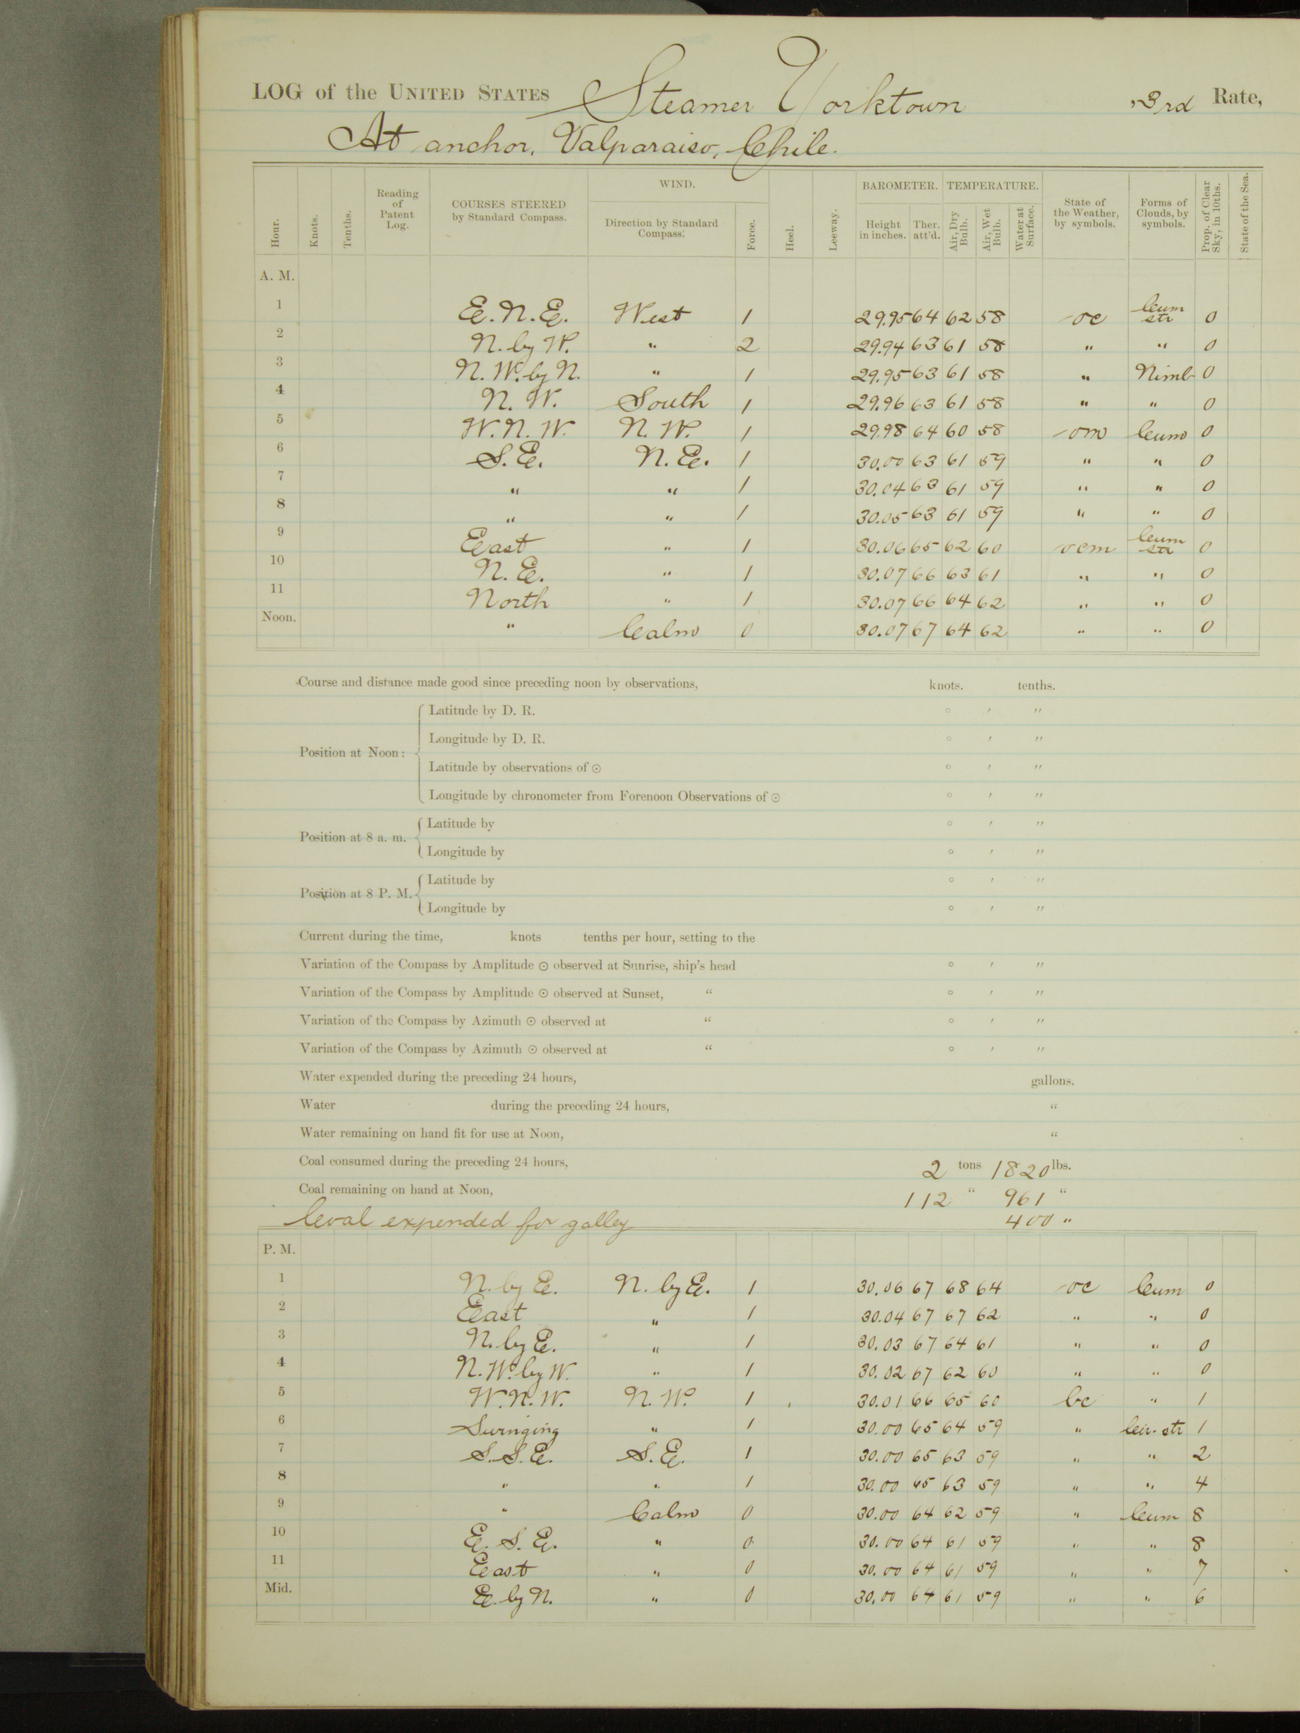 LOG of the UNITED STATES Steamer Yorktown, 3rd Rate,
At anchor, Valparaiso, Chile.
Hour. Knots. Tenths. Reading of Patent Log. COURSES STEERED by Standard Compass. WIND. Direction by Standard Compass. Force. Heel. Leeway. BAROMETER. Height in inches. Ther. att'd. TEMPERATURE. Air, Dry Bulb. Air, Wet Bulb. Water at Surface. State of the Weather, by symbols. Forms of Clouds, by symbols. Prop. of Clear Sky, in 10ths. State of the Sea.
A. M.
1 E.N.E. West 1 29.95 64 62 58 oc Cum str 0
2 N. by W. " 2 29.94 63 61 58 " " 0
3 N.W. by N. " 1 29.95 63 61 58 " Nimb 0
4 N.W. South 1 29.96 63 61 58 " " 0
5 W.N.W. N.W. 1 29.98 64 60 58 om Cum 0
6 S.E. N.E. 1 30.00 63 61 59 " " 0
7 " " 1 30.04 63 61 59 " " 0
8 " " 1 30.05 63 61 59 " " 0
9 East " 1 30.06 65 62 60 ocm Cum str 0
10 N.E. " 1 30.07 66 63 61 " " 0
11 North " 1 30.07 66 64 62 " " 0
Noon. " Calm 0 30.07 67 64 62 " " 0
Course and distance made good since preceding noon by observations, knots. tenths.
Position at Noon:
Latitude by D. R. ° ′ ″
Longitude by D. R. ° ′ ″
Latitude by observations of ☉ ° ′ ″
Longitude by chronometer from Forenoon Observations of ☉ ° ′ ″
Position at 8 a. m.
Latitude by ° ′ ″
Longitude by ° ′ ″
Position at 8 P. M.
Latitude by ° ′ ″
Longitude by ° ′ ″
Current during the time, knots tenths per hour, setting to the
Variation of the Compass by Amplitude ☉ observed at Sunrise, ship's head ° ′ ″
Variation of the Compass by Amplitude ☉ observed at Sunset, " ° ′ ″
Variation of the Compass by Azimuth ☉ observed at " ° ′ ″
Variation of the Compass by Azimuth ☉ observed at " ° ′ ″
Water expended during the preceding 24 hours, gallons.
Water during the preceding 24 hours, "
Water remaining on hand fit for use at Noon, "
Coal consumed during the preceding 24 hours, 2 tons 1820 lbs.
Coal remaining on hand at Noon, 112 " 961 "
Coal expended for galley 400 "
P. M.
1 N. by E. N. by E. 1 30.06 67 68 64 oc Cum 0
2 East " 1 30.04 67 67 62 " " 0
3 N. by E. " 1 30.03 67 64 61 " " 0
4 N.W. by W. " 1 30.02 67 62 60 " " 0
5 W.N.W. N.W. 1 30.01 66 65 60 bc " 1
6 Swinging " 1 30.00 65 64 59 " Cir-str 1
7 S.S.E. S.E. 1 30.00 65 63 59 " " 2
8 " " 1 30.00 65 63 59 " " 4
9 " Calm 0 30.00 64 62 59 " Cum 8
10 E.S.E. " 0 30.00 64 61 59 " " 8
11 East " 0 30.00 64 61 59 " " 7
Mid. E. by N. " 0 30.00 64 61 59 " " 6